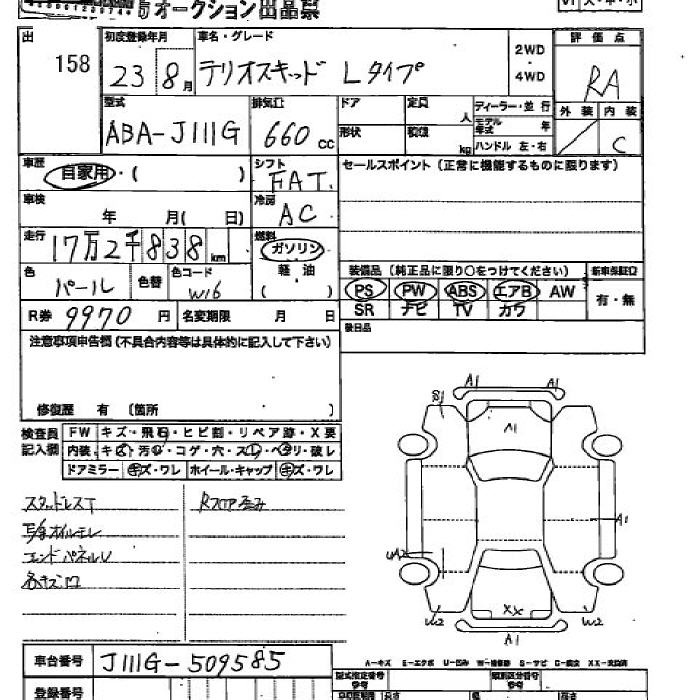 オークション出品票
出 初度登録年月 車名・グレード 2WD・4WD 評価点
158 23 8月 テリオスキッド Lタイプ RA
型式 排気量 ドア 定員 人 ディーラー・並行 外装 内装
ABA-J111G 660 CC 形状 積 kg モデル年式 年 C
ハンドル 左・右
車歴 自家用・( ) シフト FAT セールスポイント(正常に機能するものに限ります)
車検 年 月( 日) 冷房 AC
走行 17万2千838km 燃料 ガソリン・軽油 ( )
色 パール 色替 色コード W16
装備品(純正品に限り○をつけてください) 新車保証口
PS PW ABS エアB AW 有・無
SR ナビ TV カワ
R券 9970 円 名変期限 月 日 後日品
注意事項申告欄(不具合内容等は具体的に記入して下さい)
修復歴 有 (箇所 )
検査員記入欄 FW キズ・飛石・ヒビ割・リペア跡・X要
内装 キズ・汚レ・コゲ・穴・スレ・ヘタリ・破レ
ドアミラー キズ・ワレ ホイール・キャップ キズ・ワレ
スタッドレスT
エンドパネルU
各キズ凹
A1 A1
S1
A1
A1
UA2
W2 XX W2
A1
A-キズ E-エクボ U-凹み W-補修跡 S-サビ C-腐食 XX-交換済
車台番号 J111G-509585
型式指定番号 類別区分番号
登録番号 長さ 幅 高さ